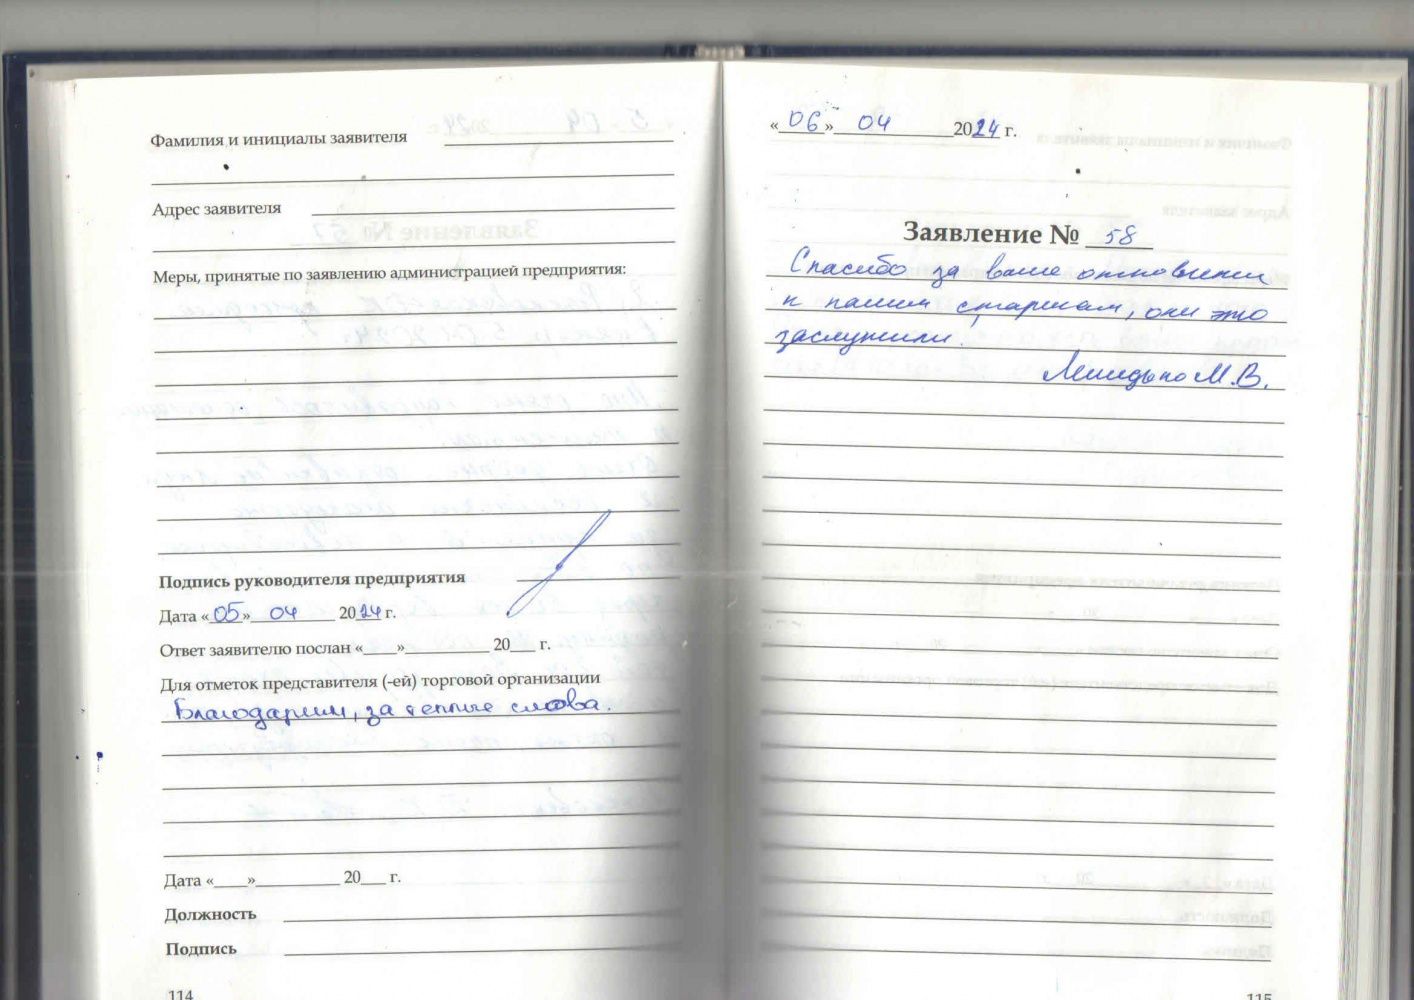 Фамилия и инициалы заявителя
Адрес заявителя
Меры, принятые по заявлению администрацией предприятия:
Подпись руководителя предприятия
Дата «05» 04 2024 г.
Ответ заявителю послан «____»__________ 20___ г.
Для отметок представителя (-ей) торговой организации
Благодарим, за теплые слова.
Дата «____»__________ 20___ г.
Должность
Подпись
114
«06» 04 2024 г.
Заявление № 58
Спасибо за ваше отношение
к нашим старикам, они это
заслужили.
М.В.
115